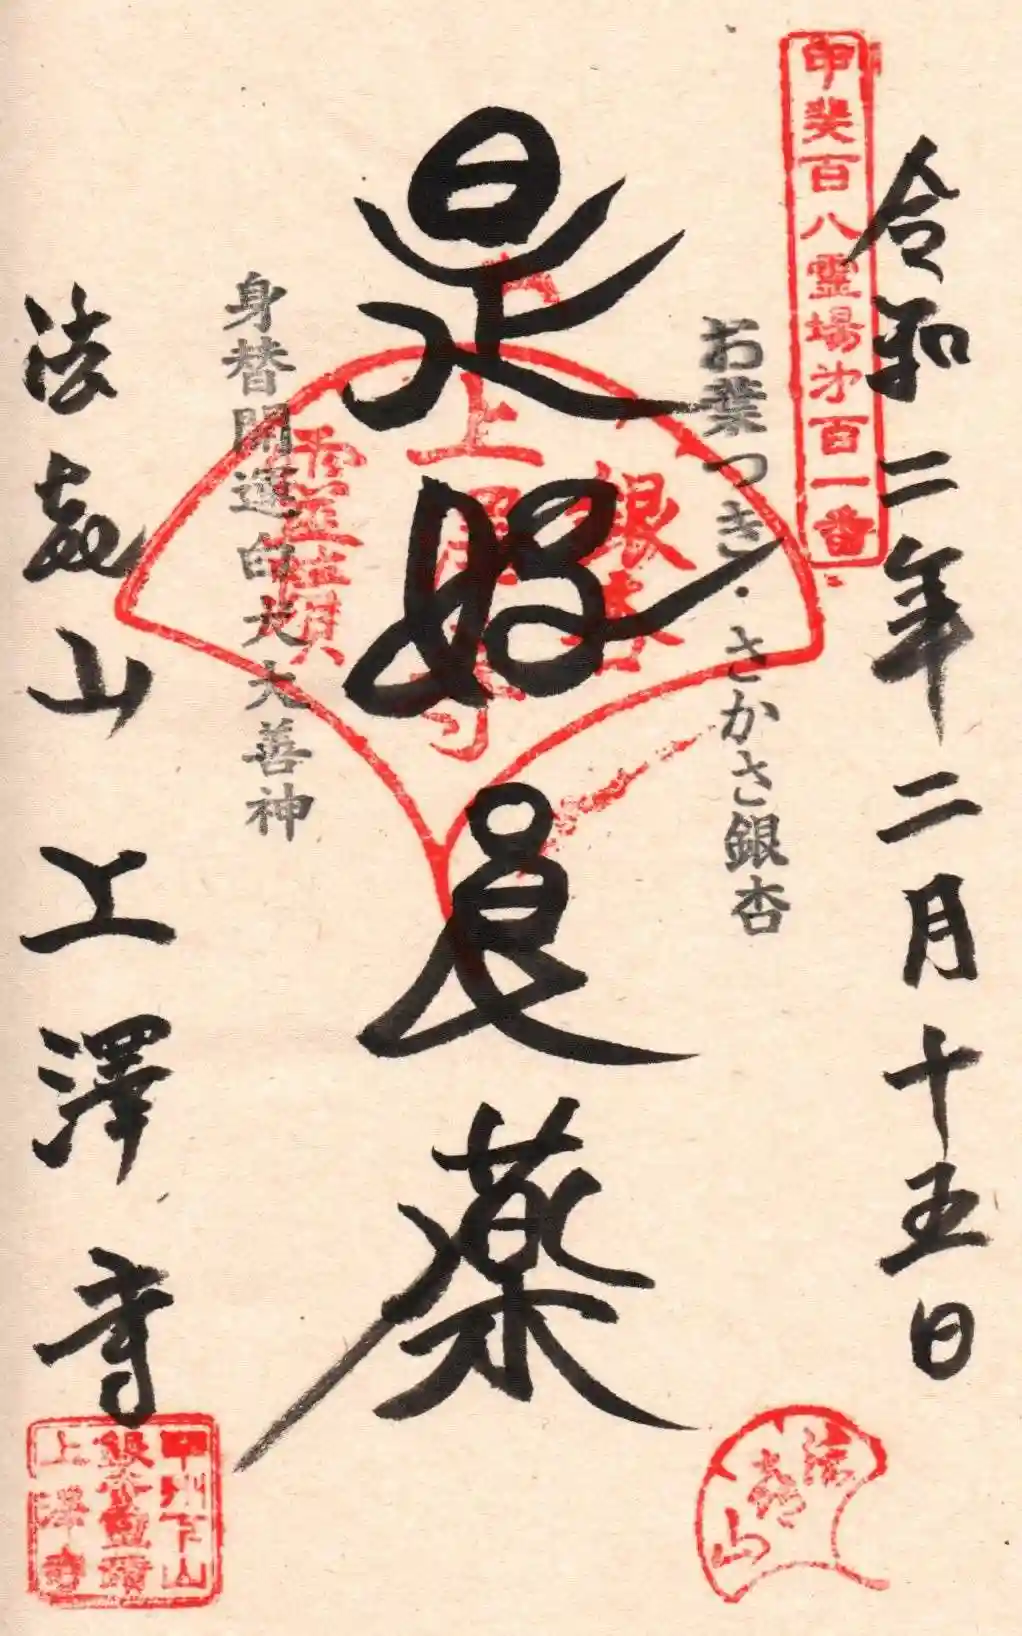 甲斐百八霊場第百一番
令和二年二月十五日
お葉つき・さかさ銀杏
是好良薬
銀杏
上澤寺
霊蹟
身替開運白犬大善神
法喜山上澤寺
法喜山
甲州下山
銀杏霊蹟
上澤寺